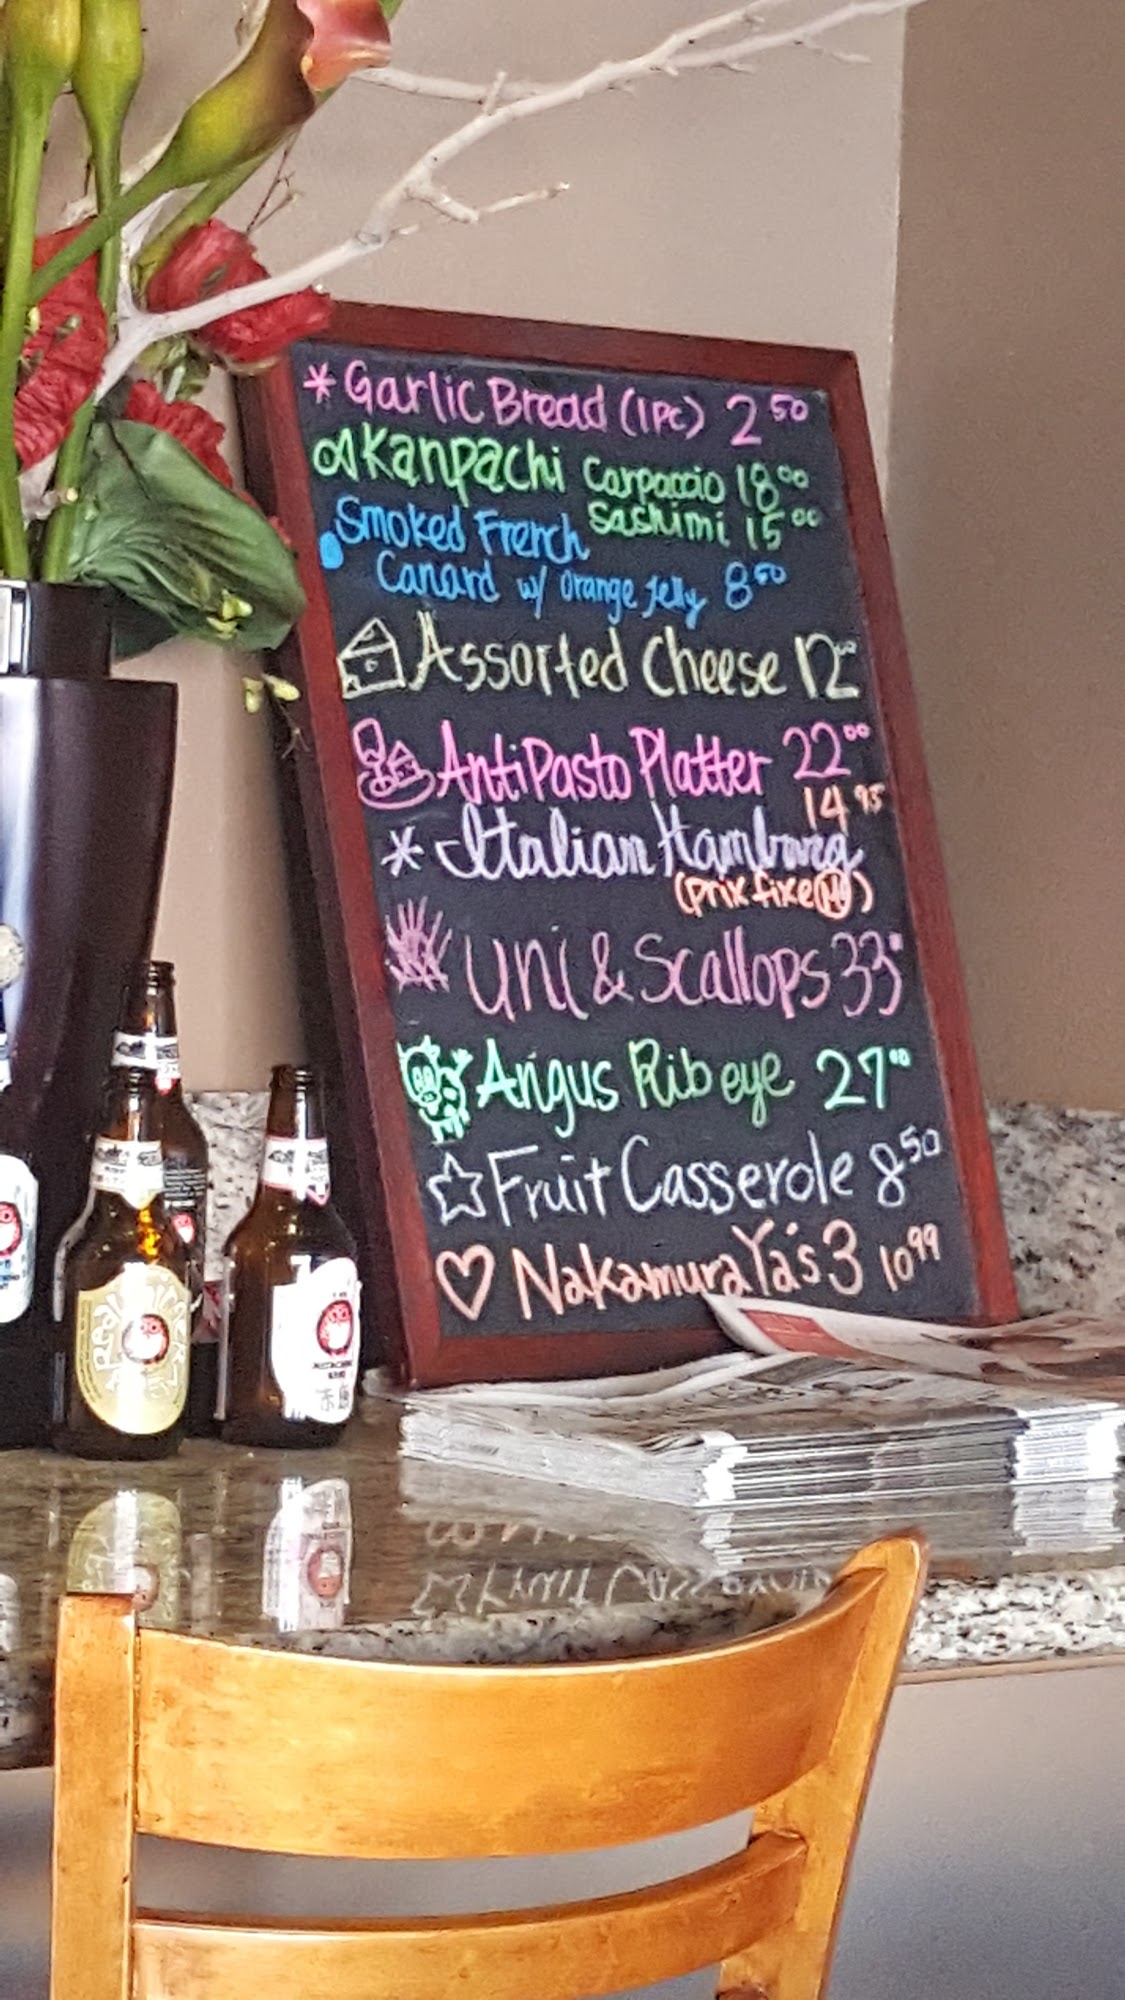 * Garlic Bread (1pc) 2 50
Kanpachi Carpaccio 18 00
Sashimi 15 00
Smoked French
Canard w/ orange Jelly 8 50
Assorted Cheese 12 00
AntiPasto Platter 22 00
14 95
* Italian Hamburg
(prix fixe M)
Uni & Scallops 33
Angus Rib eye 27 00
Fruit Casserole 8 50
NakamuraYa's 3 10 99
Red